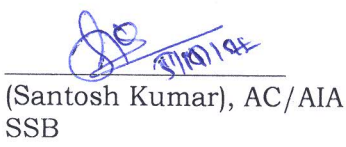 (Santosh Kumar), AC/AIA
SSB